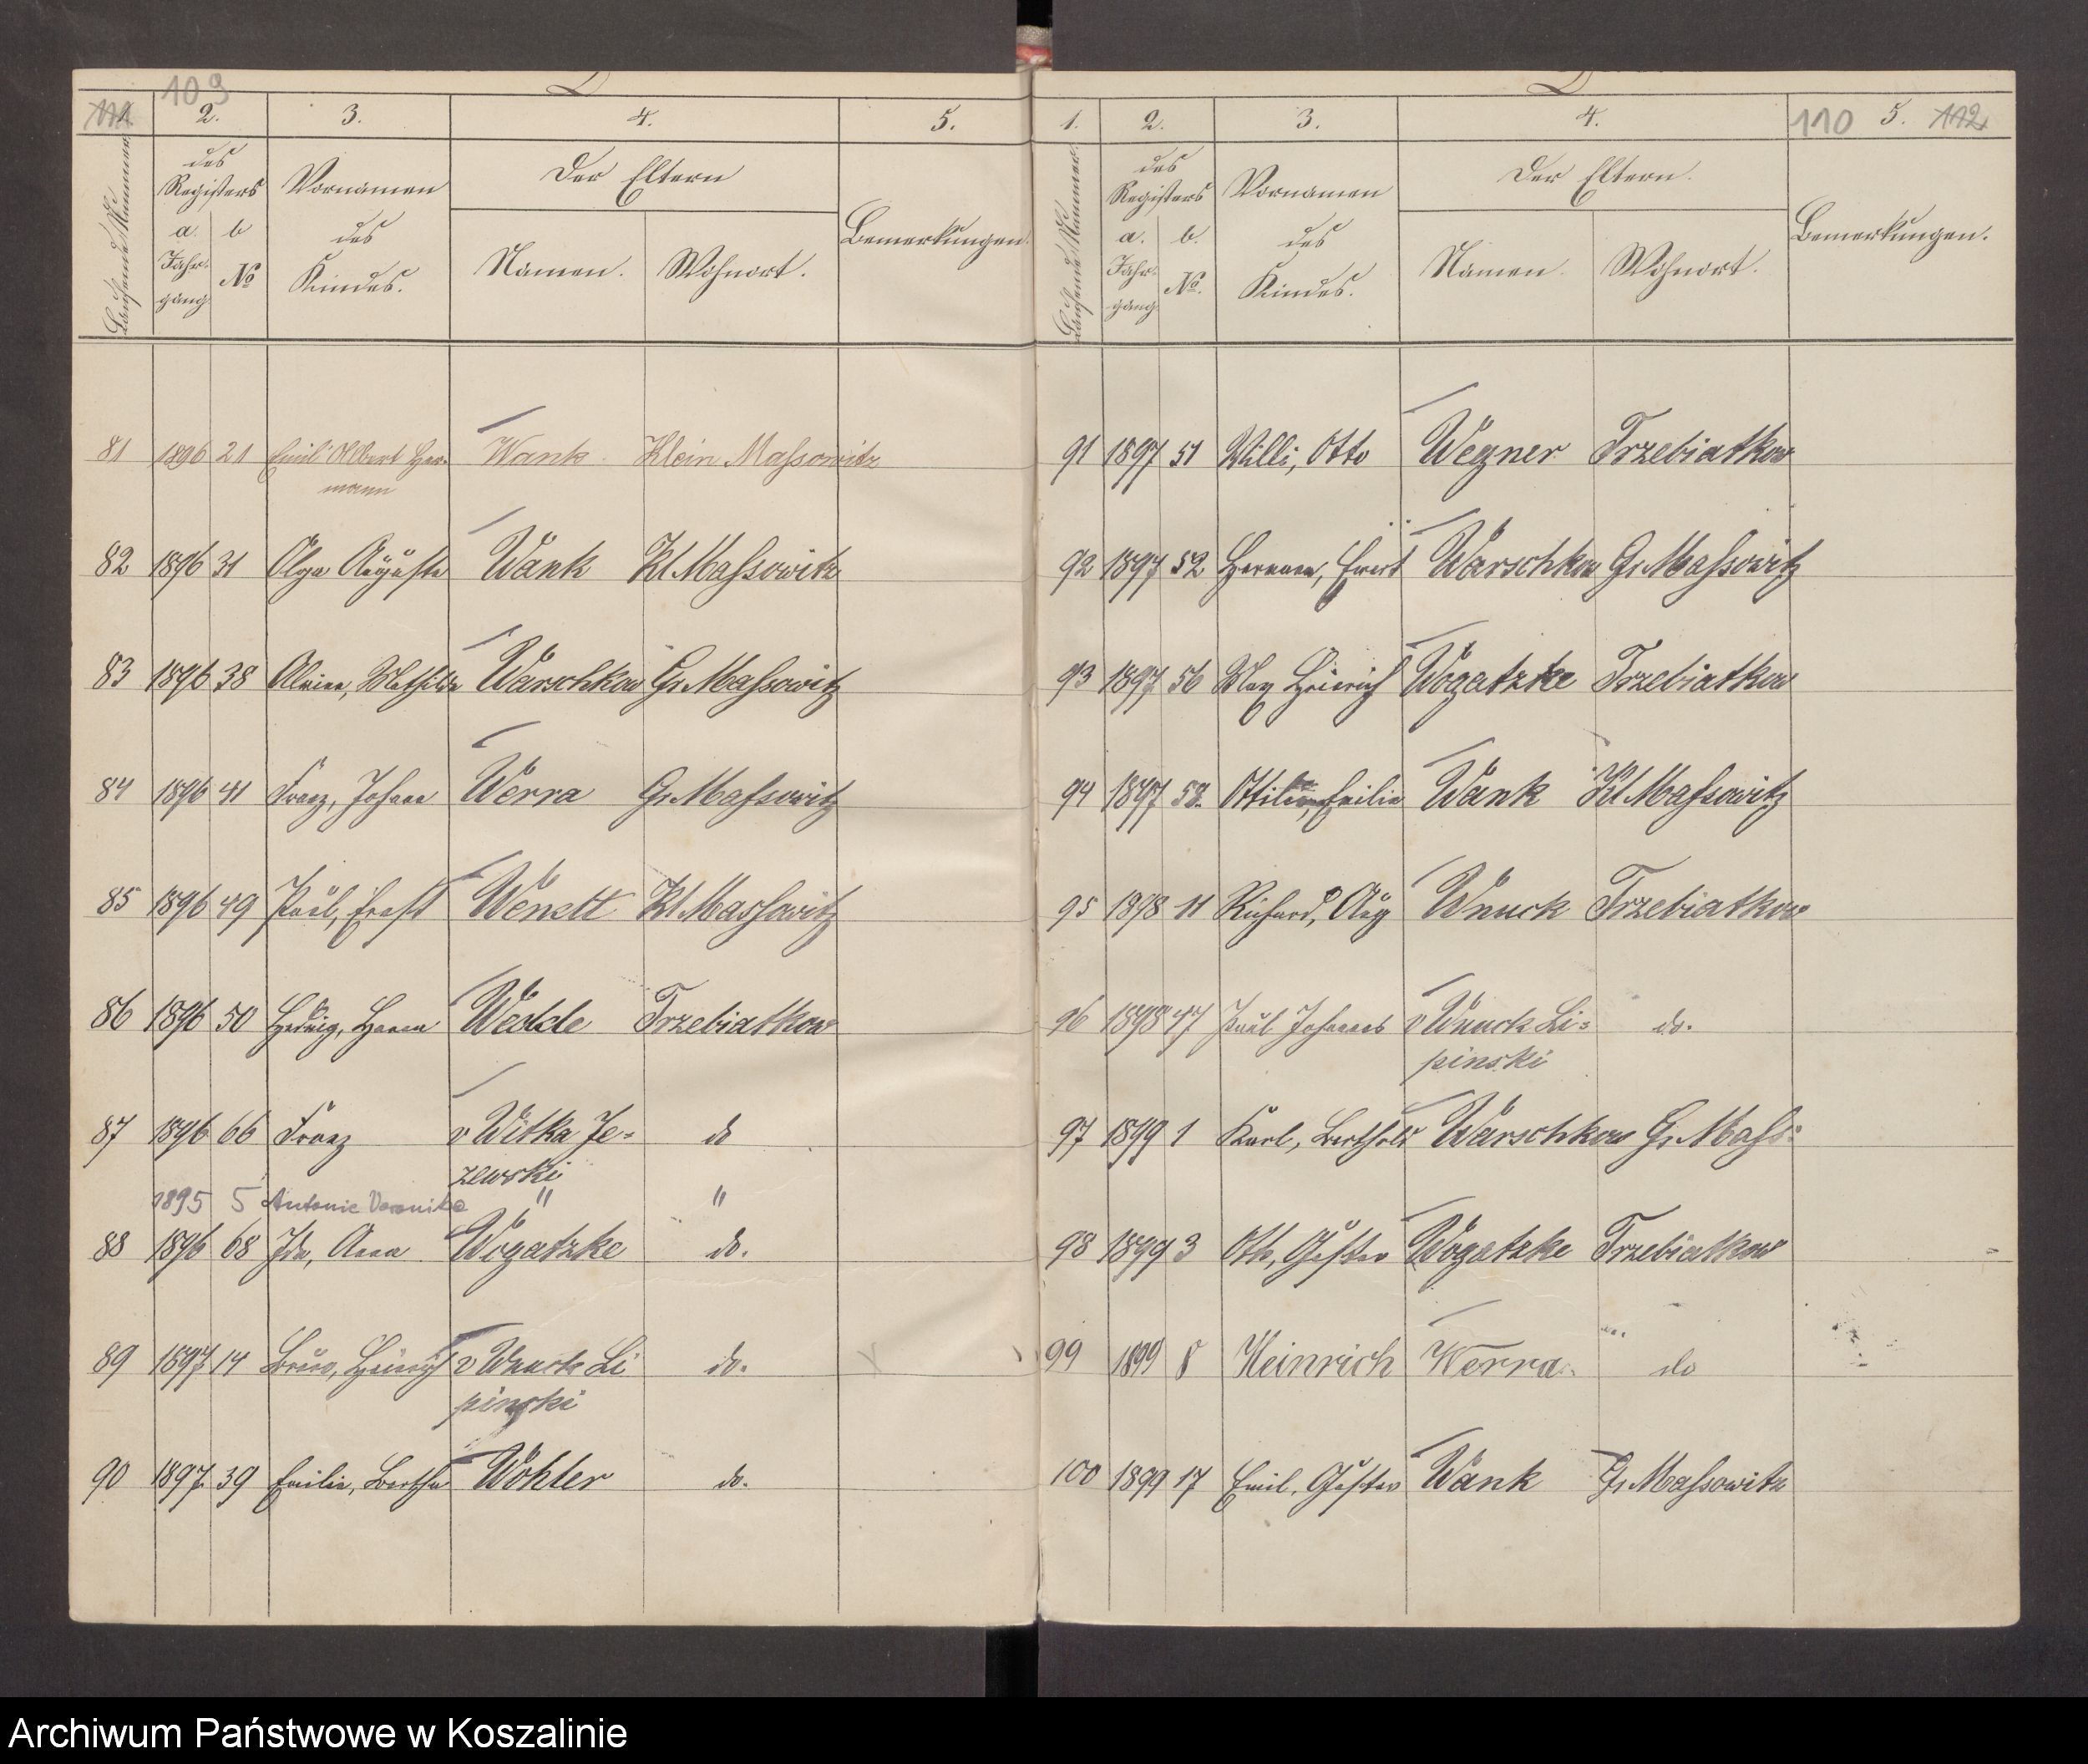 109
1. 2. 3. 4. 5.
Laufende Nummer
des Registers
a. Jahrgang
b №
Vornamen des Kindes.
Der Eltern
Namen. Wohnort.
Bemerkungen.
81 1896 21 Emil Albert Her-
mann Wank Klein Massowitz
82 1896 31 Olga Auguste Wank Kl Massowitz
83 1896 38 Alwine, Mathilde Warschkow Gr. Massowitz
84 1896 41 Franz, Johann Werra Gr. Massowitz
85 1896 49 Paul, Ernst Wendt Kl Massowitz
86 1896 50 Hedwig, Wedde Trzebiatkow
87 1896 66 Franz v Witka Je-
zewski do
1895 5 Antonie Veronika " "
88 1896 68 Ida, Anna Wogatzke do.
89 1897 14 Bruno, Heinrich v Wnuck Li
pinski do.
90 1897 39 Emilie, Bertha Wohler do.
1. 2. 3. 4. 110 5. 112
Laufende Nummer
des Registers
a. Jahrgang
b. №.
Vornamen des Kindes.
Der Eltern.
Namen. Wohnort.
Bemerkungen.
91 1897 51 Willi, Otto Wegner Trzebiatkow
92 1897 52 Warschkow Gr Massowitz
93 1897 56 Max Heinrich Wogatzke Trzebiatkow
94 1897 58. Emilie Wank Kl Massowitz
95 1898 11 Richard, Aug Wnuck Trzebiatkow
96 1898 47 Paul Johannes v Wnuck Li-
pinski do.
97 1899 1 Karl, Berthold Warschkow Gr. Mass:
98 1899 3 Otto, Gustav Wogatzke Trzebiatkow
99 1899 8 Heinrich Werra do
100 1899 17 Emil, Gustav Wank Gr Massowitz
Archiwum Państwowe w Koszalinie